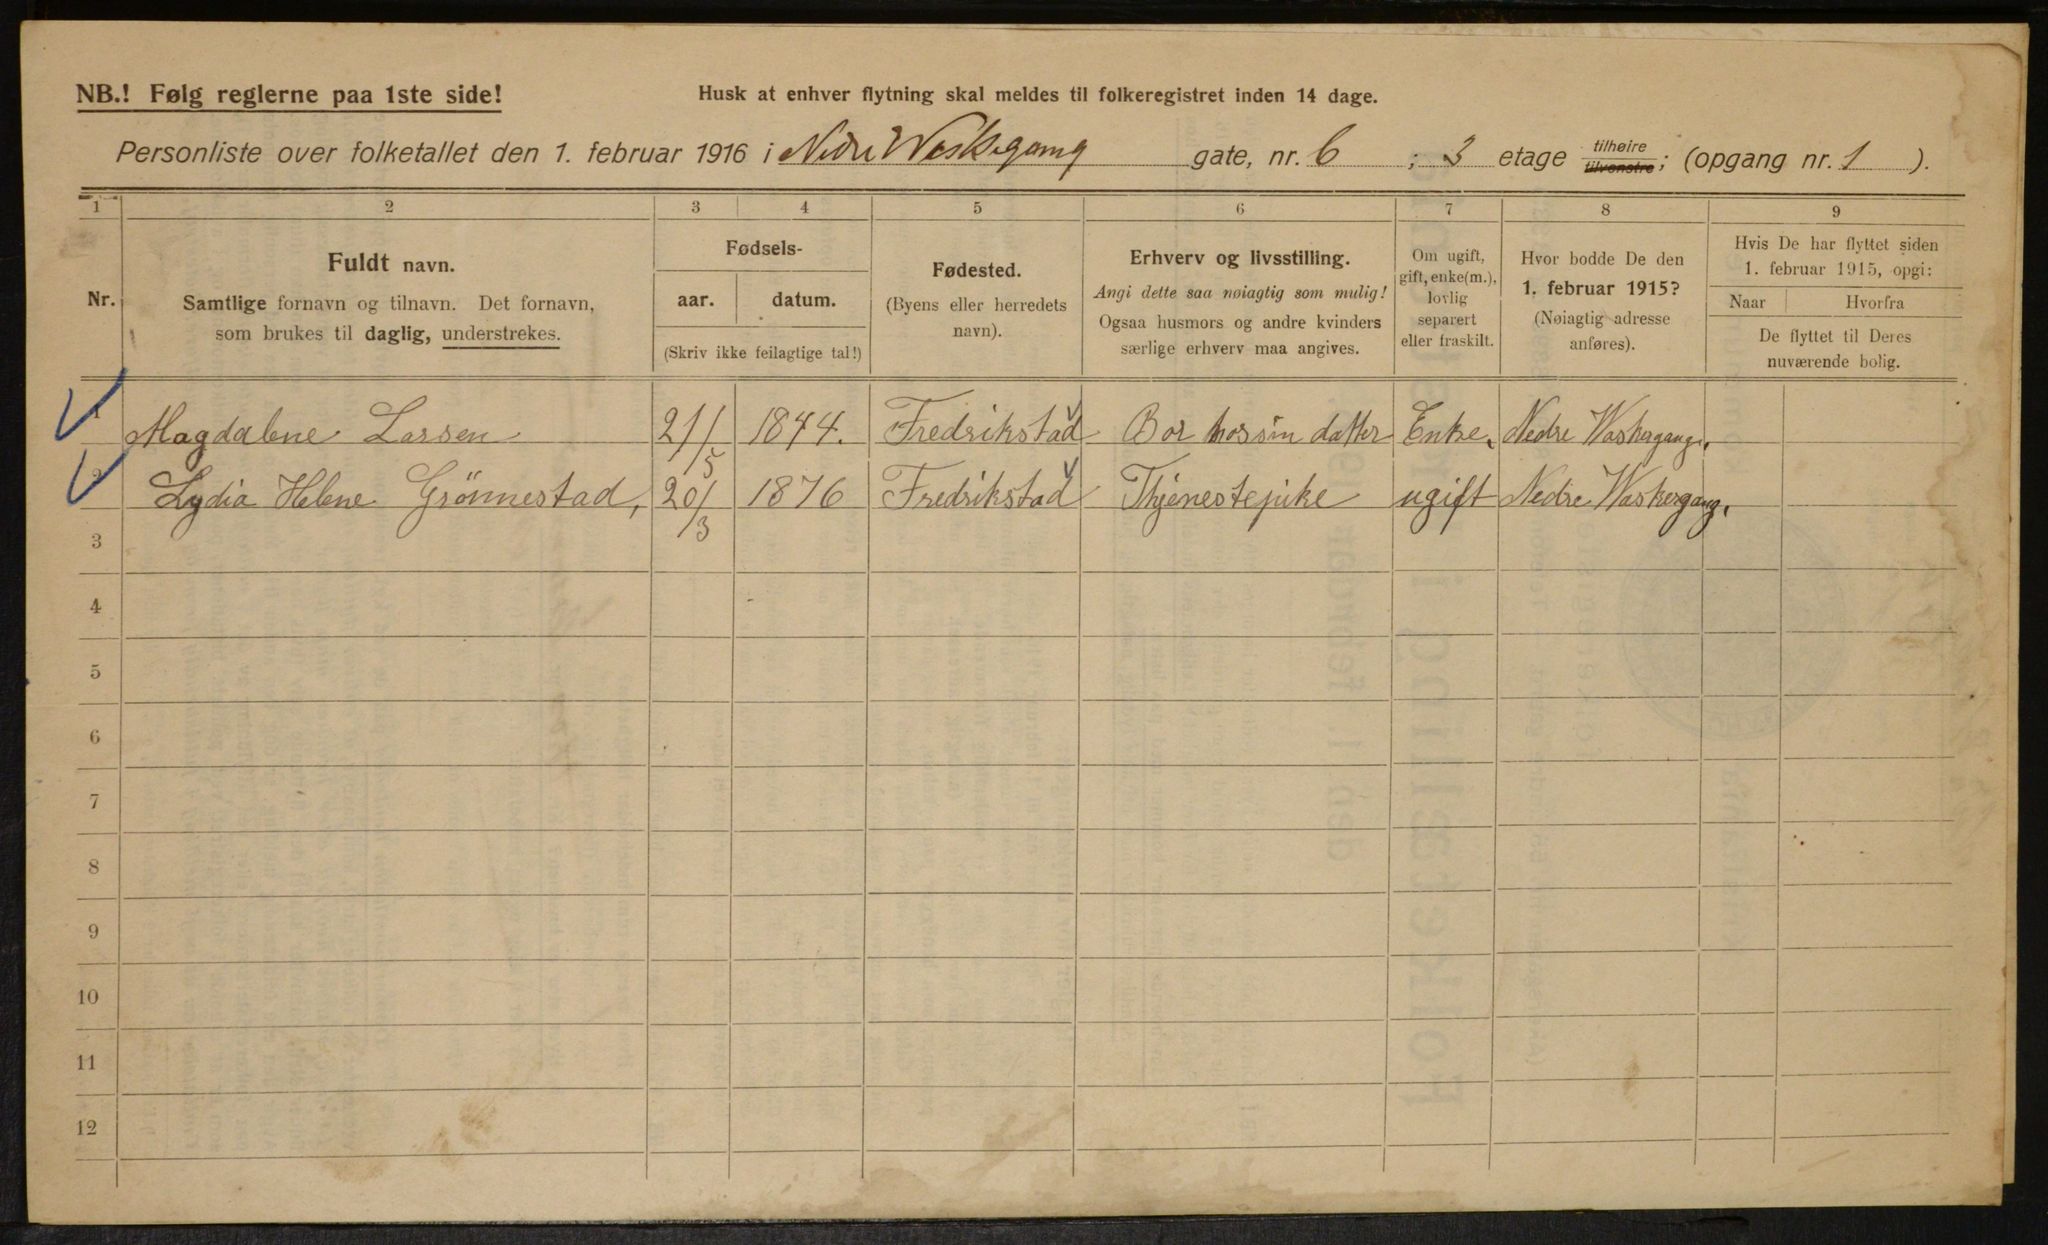 NB.! Følg reglerne paa 1ste side!
Husk at enhver flytning skal meldes til folkeregistret inden 14 dage.
Personliste over folketallet den 1. februar 1916 i Nedre Waskegang gate, nr. 6 ; 3 etage tilhøire tilvenstre; (opgang nr. 1 ).
1 2 3 4 5 6 7 8 9
Nr.
Fuldt navn.
Samtlige fornavn og tilnavn. Det fornavn,
som brukes til daglig, understrekes.
Fødsels-
aar. datum.
(Skriv ikke feilagtige tal!)
Fødested.
(Byens eller herredets
navn).
Erhverv og livsstilling.
Angi dette saa nøiagtig som mulig!
Ogsaa husmors og andre kvinders
særlige erhverv maa angives.
Om ugift,
gift, enke(m.),
lovlig
separert
eller fraskilt.
Hvor bodde De den
1. februar 1915?
(Nøiagtig adresse
anføres).
Hvis De har flyttet siden
1. februar 1915, opgi:
Naar Hvorfra
De flyttet til Deres
nuværende bolig.
1 Magdalene Larsen 21/5 1844. Fredrikstad Bor hos sin datter Enke, Nedre Waskergang,
2 Lydia Helene Grönnestad, 20/3 1876 Fredrikstad Thjenestepike ugift Nedre Waskergang,
3
4
5
6
7
8
9
10
11
12